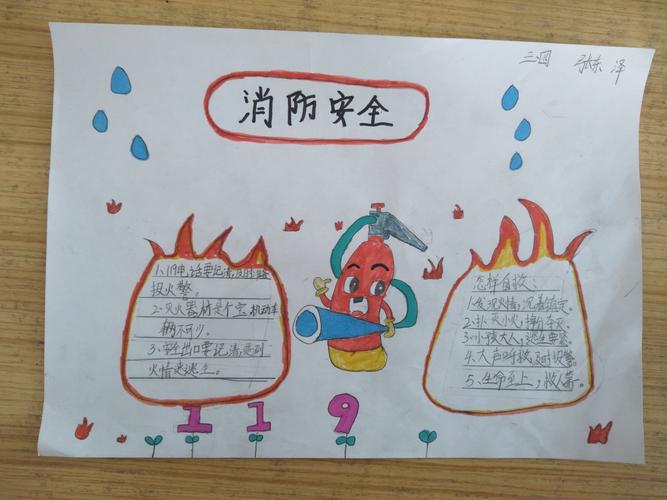 三四 张东泽
消防安全
1、119电话要记清,及时
报火警。
2、灭火器材是个宝,机动车
辆不可少。
3、安全出口要记清,遇到
火情速逃生。
怎样自救:
1、发现火情,沉着镇定。
2、扑灭小火,
3、小孩大人,逃生要紧。
4、大声呼救,及时报警。
5、生命至上,救人第一。
119